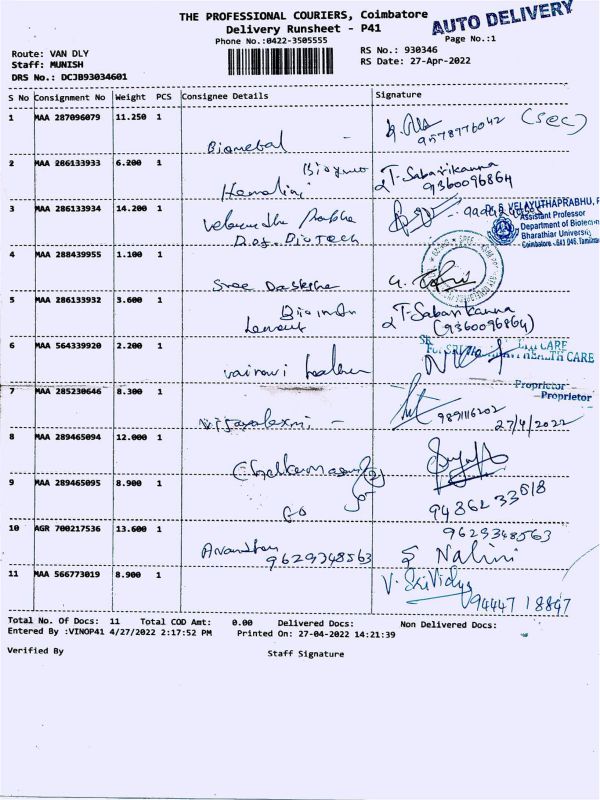 THE PROFESSIONAL COURIERS, Coimbatore
AUTO DELIVERY
Delivery Runsheet - P41
Phone No.:0422-3505555
Page No.:1
Route: VAN DLY
RS No.: 930346
Staff: MUNISH
RS Date: 27-Apr-2022
DRS No.: DCJB93034601
S No Consignment No Weight PCS Consignee Details Signature
1 MAA 287096079 11.250 1
9578776042 (Sec)
2 MAA 286133933 6.200 1
T-Sabarikanna
9360096864
3 MAA 286133934 14.200 1
VELAYUTHAPRABHU,
Assistant Professor
Department of Biotechn
Bharathiar University
Coimbatore - 641 046.
4 MAA 288439955 1.100 1
Sree
5 MAA 286133932 3.600 1
T-Sabarikanna
(9360096864)
6 MAA 564339920 2.200 1
HEALTH CARE
7 MAA 285230646 8.300 1
Proprietor
Proprietor
27/4/2022
8 MAA 289465094 12.000 1
9 MAA 289465095 8.900 1
10 AGR 700217536 13.600 1
9629348563
9629348563
Nalini
11 MAA 566773019 8.900 1
V. SriVidya
94447 18847
Total No. Of Docs: 11 Total COD Amt: 0.00 Delivered Docs: Non Delivered Docs:
Entered By :VINOP41 4/27/2022 2:17:52 PM Printed On: 27-04-2022 14:21:39
Verified By Staff Signature